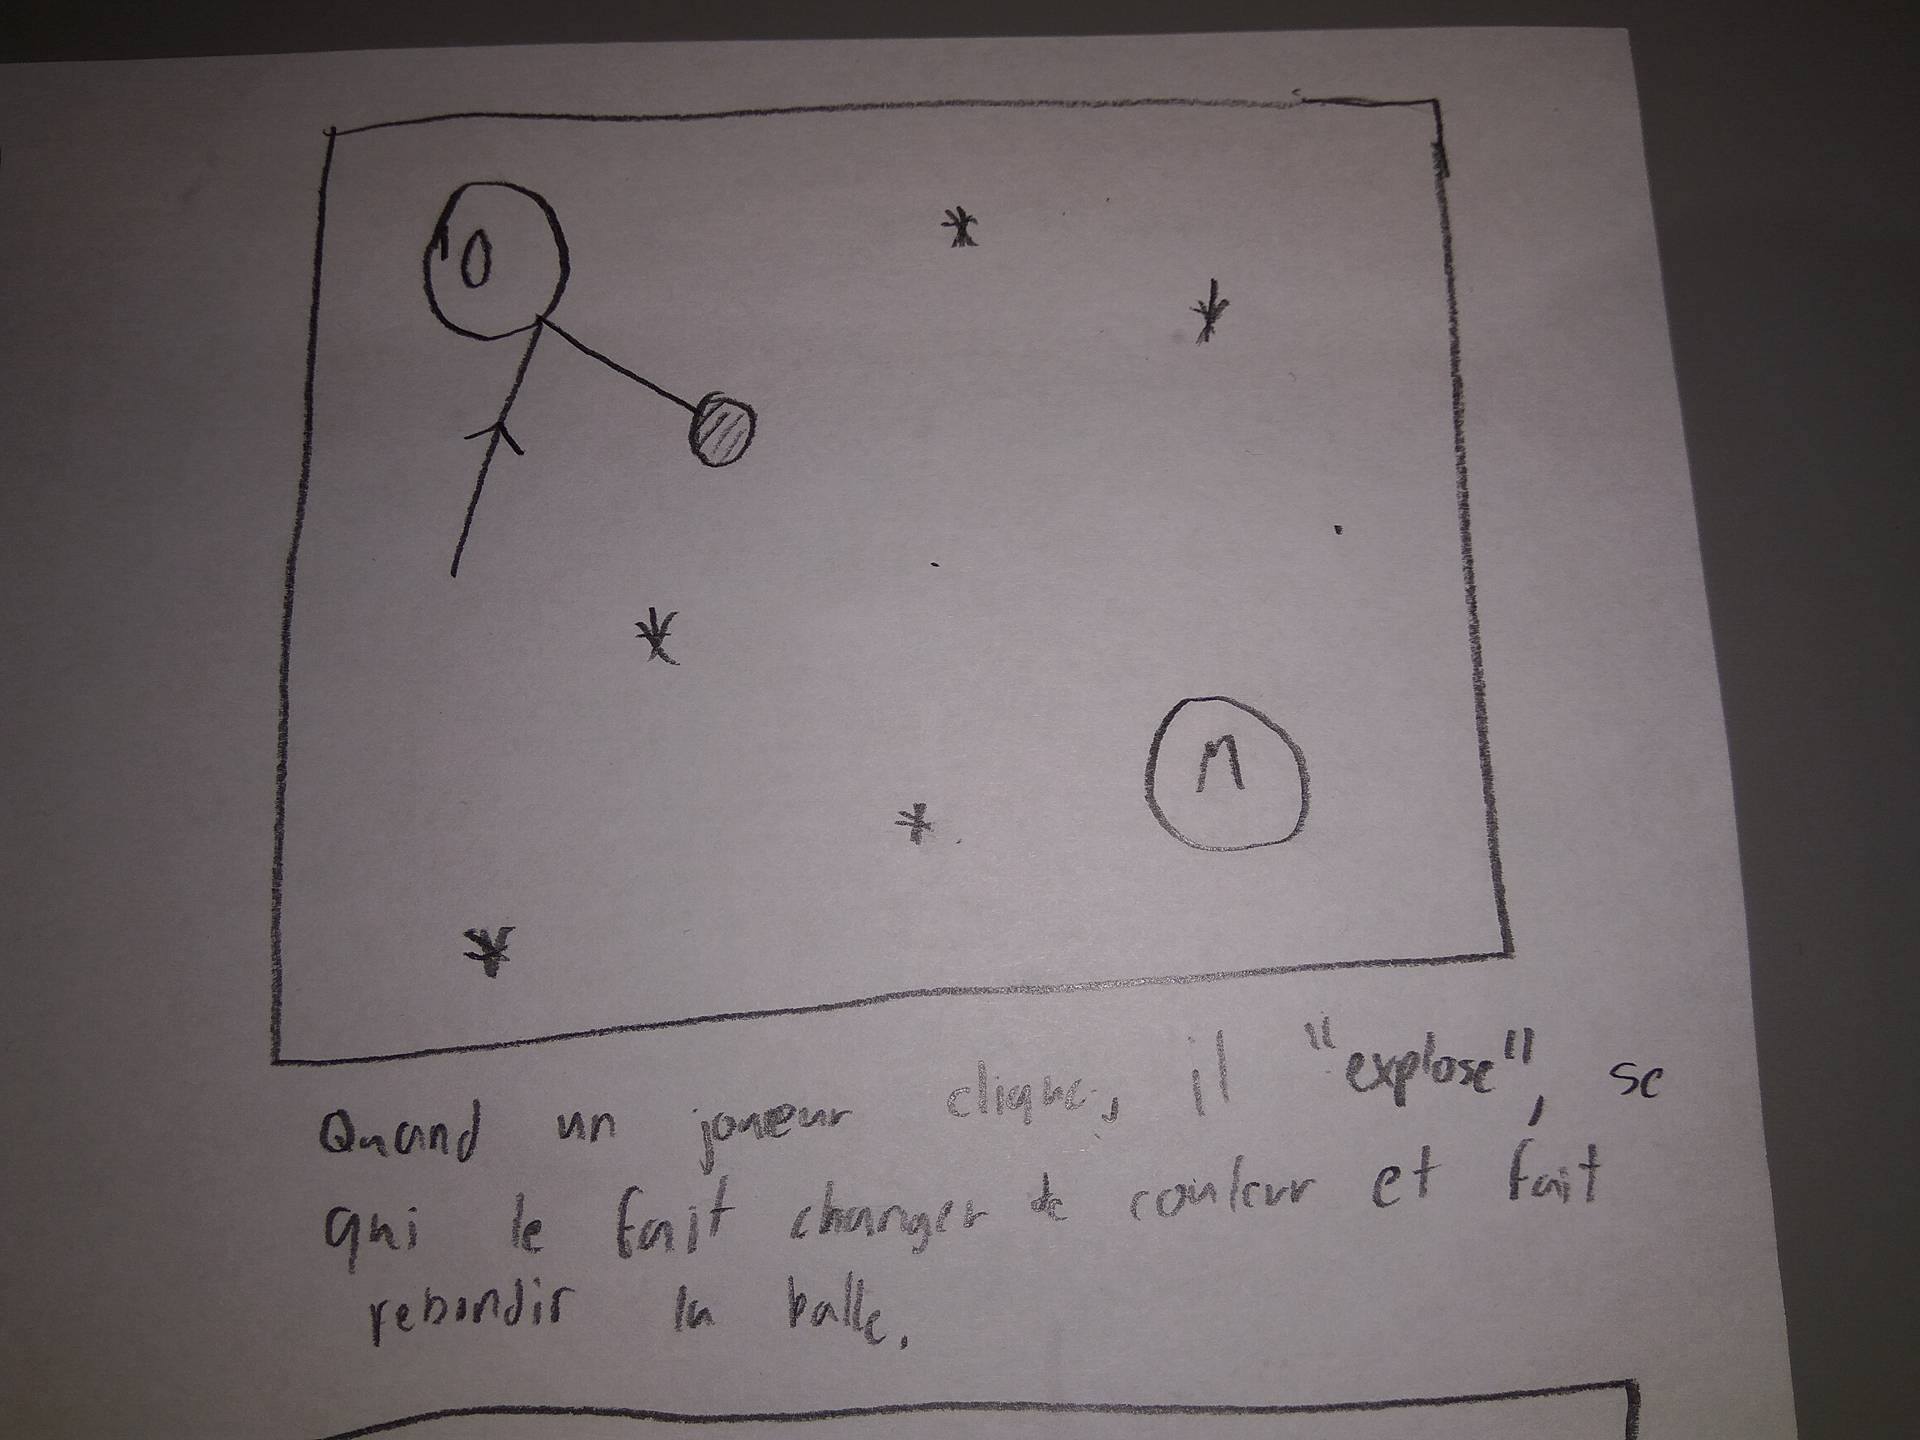 O
M
Quand un joueur clique, il "explose", se
qui le fait changer de couleur et fait
rebondir la balle.